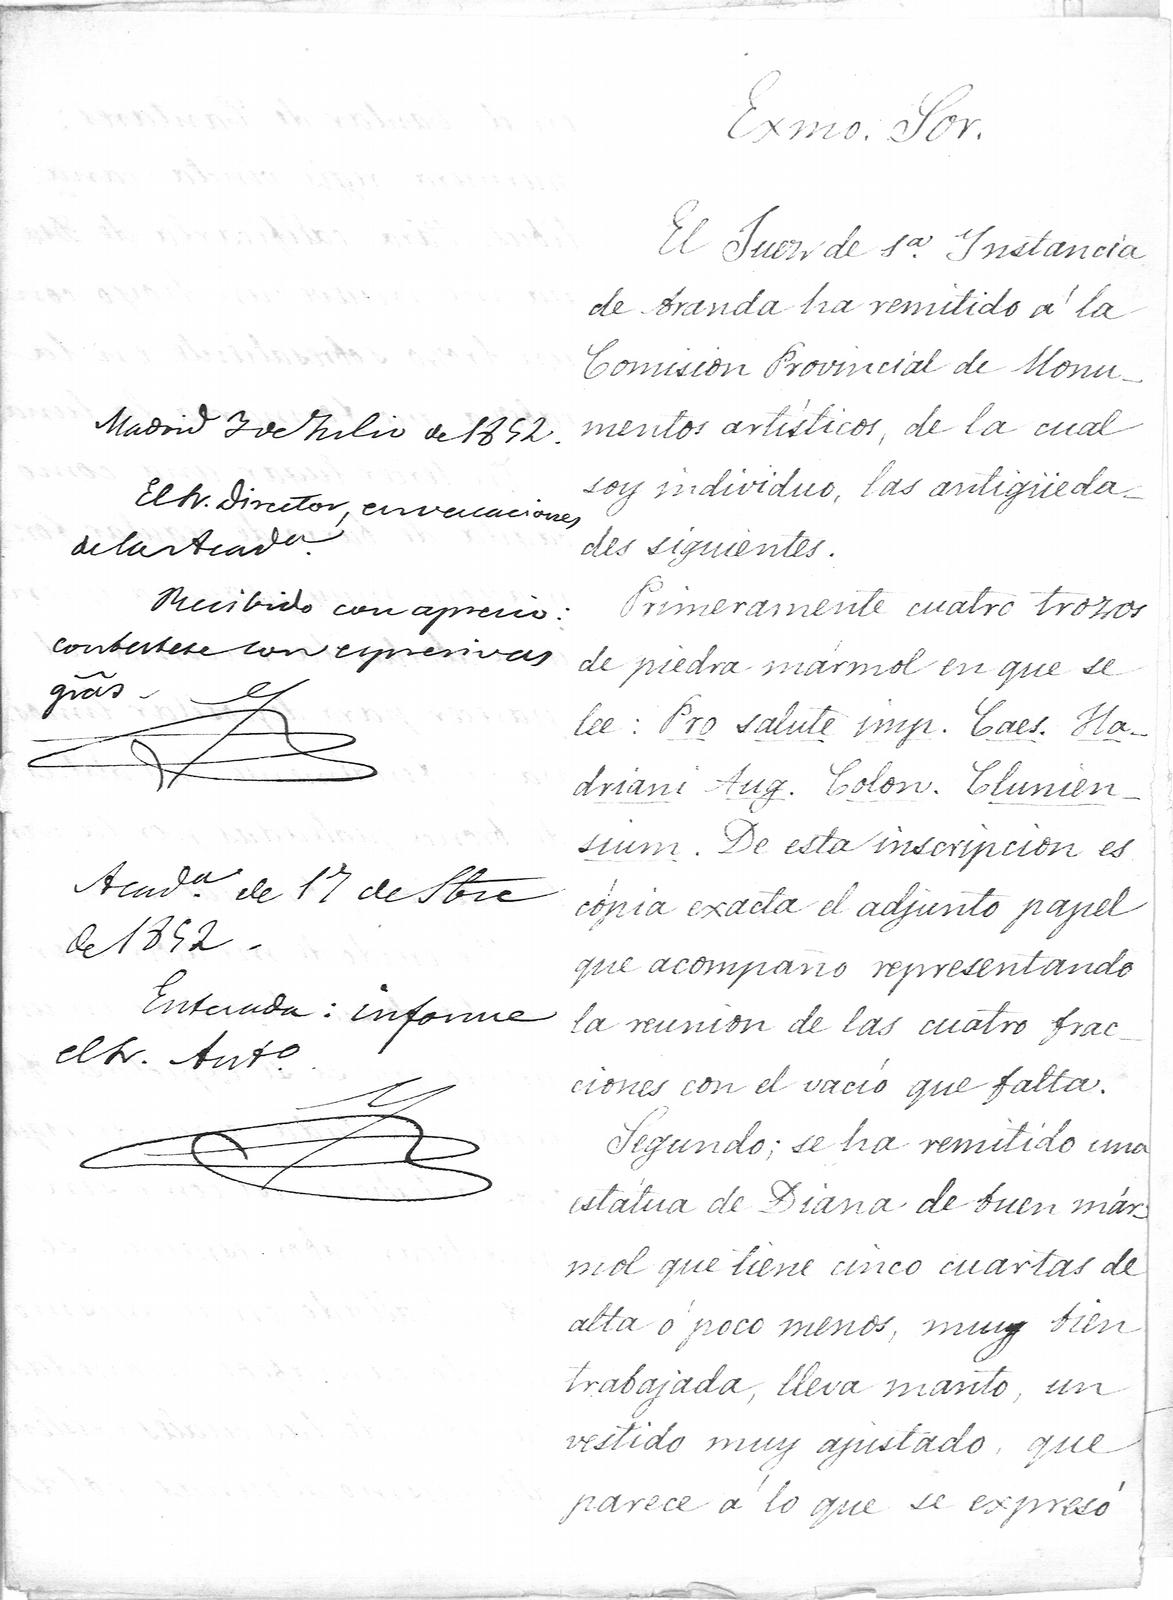 Exmo. Sor.
El Juez de 1ª. Instancia
de Aranda ha remitido á la
Comision Provincial de Monu-
mentos artísticos, de la cual
soy individuo, las antigüeda-
des siguientes.
Primeramente cuatro trozos
de piedra mármol en que se
lee: Pro salute imp. Caes. Ha-
driani Aug. Colon. Clunien-
sium. De esta inscripcion es
cópia exacta el adjunto papel
que acompaño representando
la reunion de las cuatro frac-
ciones con el vacío que falta.
Segundo; se ha remitido una
estátua de Diana de buen már-
mol que tiene cinco cuartas de
alta ó poco menos, muy bien
trabajada, lleva manto, un
vestido muy ajustado, que
parece á lo que se expresó
Madrid 3 de Julio de 1852.
El Sr. Director, en vacaciones
de la Acadª.
Recibido con aprecio:
contestese con expresivas
grãs.
Acadª. de 17 de Sbre
de 1852.
Enterada: informe
el Sr. Antº.